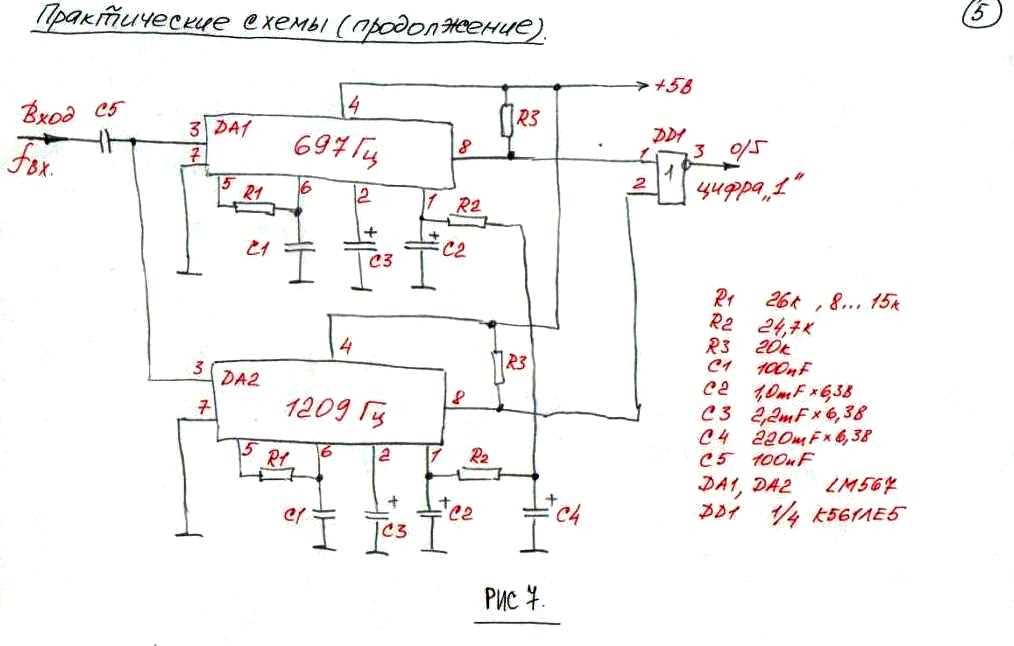 Практические схемы (продолжение).
5
Вход
fвх.
C5
3
7
DA1
697 Гц
4
8
R3
+5В
DD1
1
2
1
3
0/5
цифра „1"
5
R1
6
2
1
R2
C1
+
C3
+
C2
3
7
DA2
1209 Гц
4
8
R3
5
R1
6
2
1
R2
C1
+
C3
+
C2
+
C4
R1 26к , 8... 15к
R2 24,7к
R3 20к
C1 100nF
C2 1,0mF × 6,3В
C3 2,2mF × 6,3В
C4 220mF × 6,3В
C5 100nF
DA1, DA2 LM567
DD1 1/4 К561ЛЕ5
РИС 7.